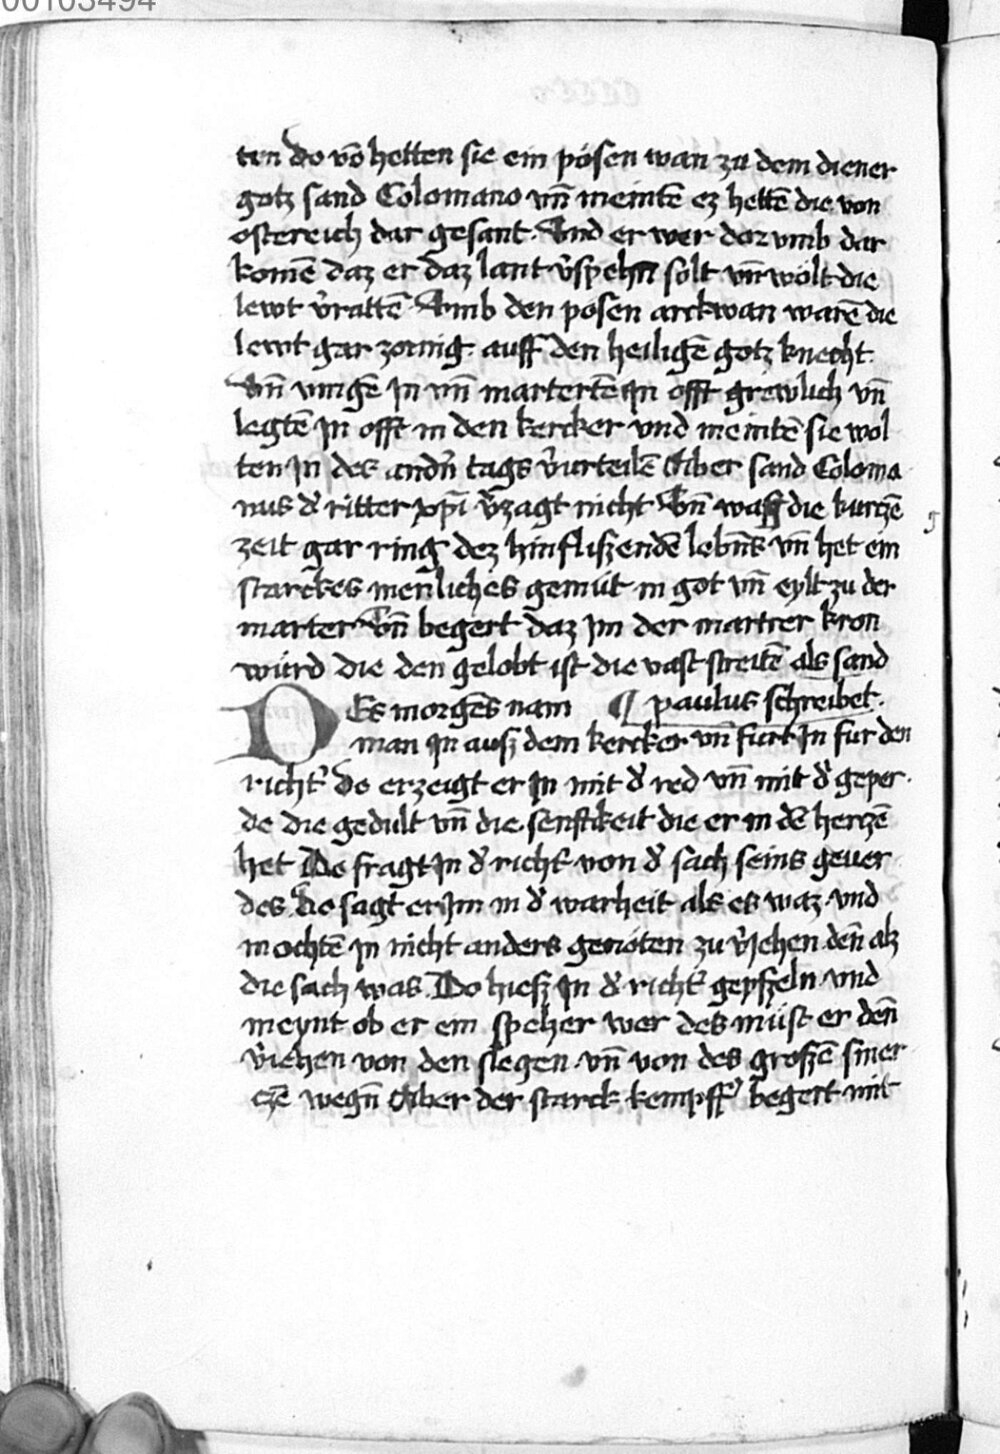 00103494
ten do vō hetten sie ein pösen wan zu dem diener
gotz sand Colomano vn̄ meintē ez hettē die von
ostereich dar gesant. Vnd er wer dorvmb dar
komē daz er daz lant v̓spehn solt vn̄ wolt die
lewt v̓rattē Vmb den posen arckwan warē die
lewt gar zornig auff den heiligē gotz knecht.
Vn̄ viengē jn vn̄ martertē jn offt grewlich vn̄
legtē jn offt in den kercker vnd meintē sie wol
ten jn des andn̄ tags v̓urteilē Aber sand Coloma
nus d̓ ritter xp̄i v̓zagt nicht Vn̄ wag die kurczē
zeit gar ring dez hinfliszendē lebn̄s vn̄ het ein
starckes menliches gemüt in got vn̄ eylt zu der
marter Vn̄ begert daz jm der martrer kron
würd die den gelobt ist die vast streitē als sand
¶ paulus schreibet.
DEs morgēs nam
man jn ausz dem kercker vn̄ furt jn fur den
richt̓ Do erzeigt er jn mit d̓ red vn̄ mit d̓ geper
de die gedult vn̄ die senftikeit die er in dē herczē
het Do fragt jn d̓ richt̓ von d̓ sach seins gever
des Do sagt er jm in d̓ warheit als es waz vnd
mochtē jn nicht anders genöten zu v̓jehen den̄ alz
die sach was. Do hiesz jn d̓ richt̓ geyszeln vnd
meynt ob er ein speher wer des müst er den̄
v̓iehen von den slegen vn̄ von des groszē smer
czē wegn̄ Aber der starck kempff̓ begert mit